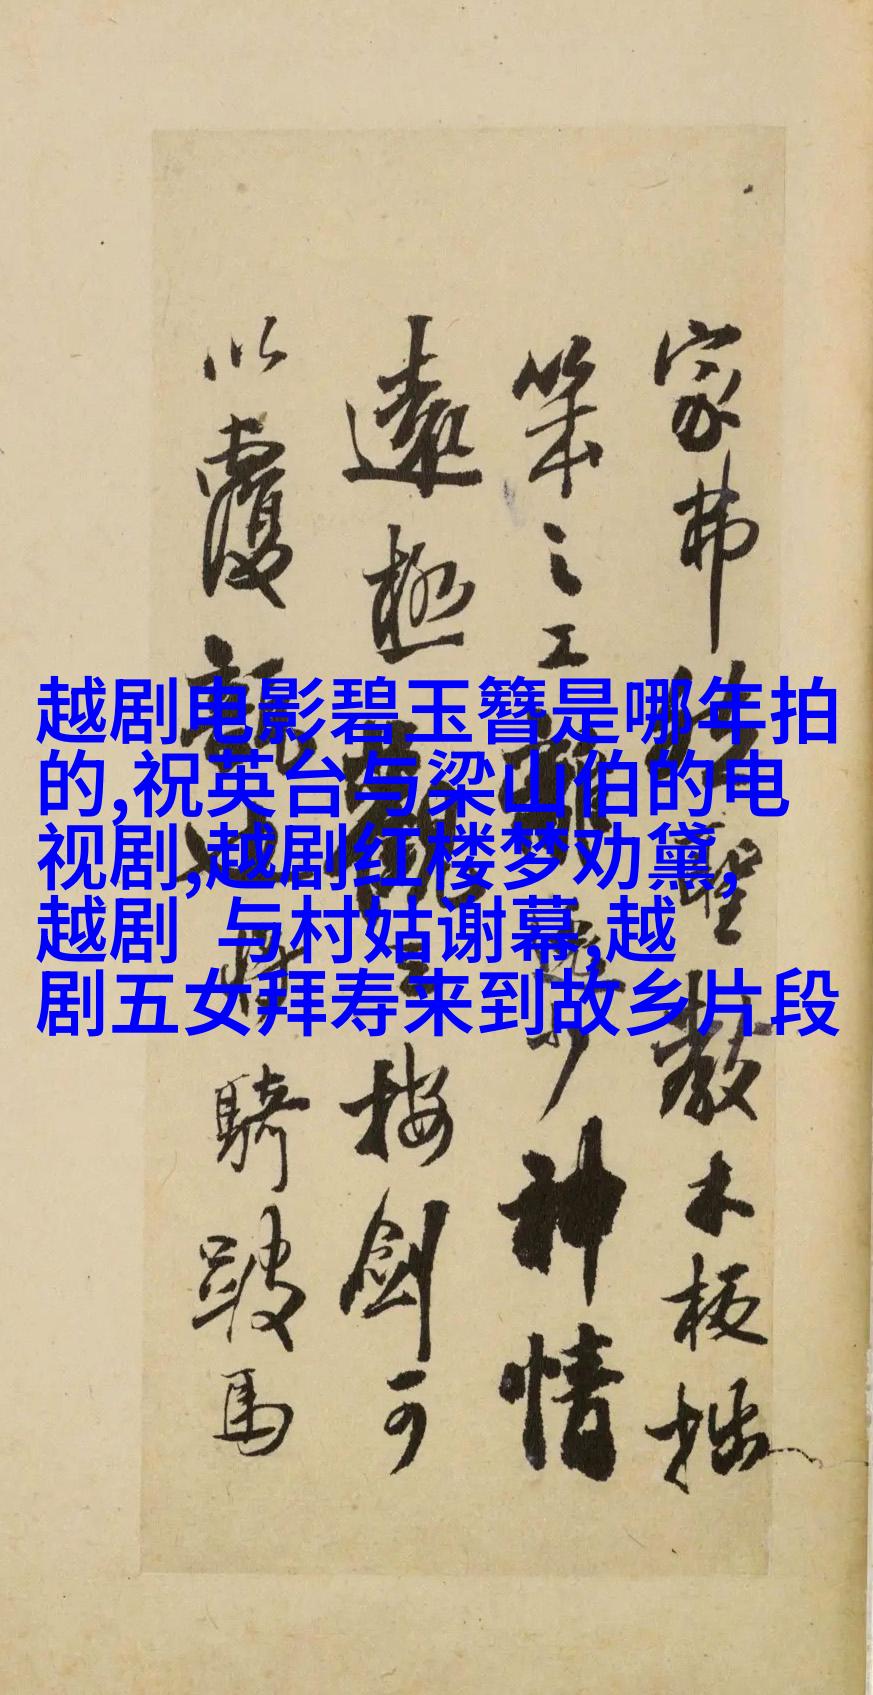 越剧电影碧玉簪是哪年拍
的,祝英台与梁山伯的电
视剧,越剧红楼梦劝黛,
越剧 与村姑谢幕,越
剧五女拜寿来到故乡片段
家弗 聖教木板拙
筆之工 神情
遠極 按剑可
以覆 騎跛馬